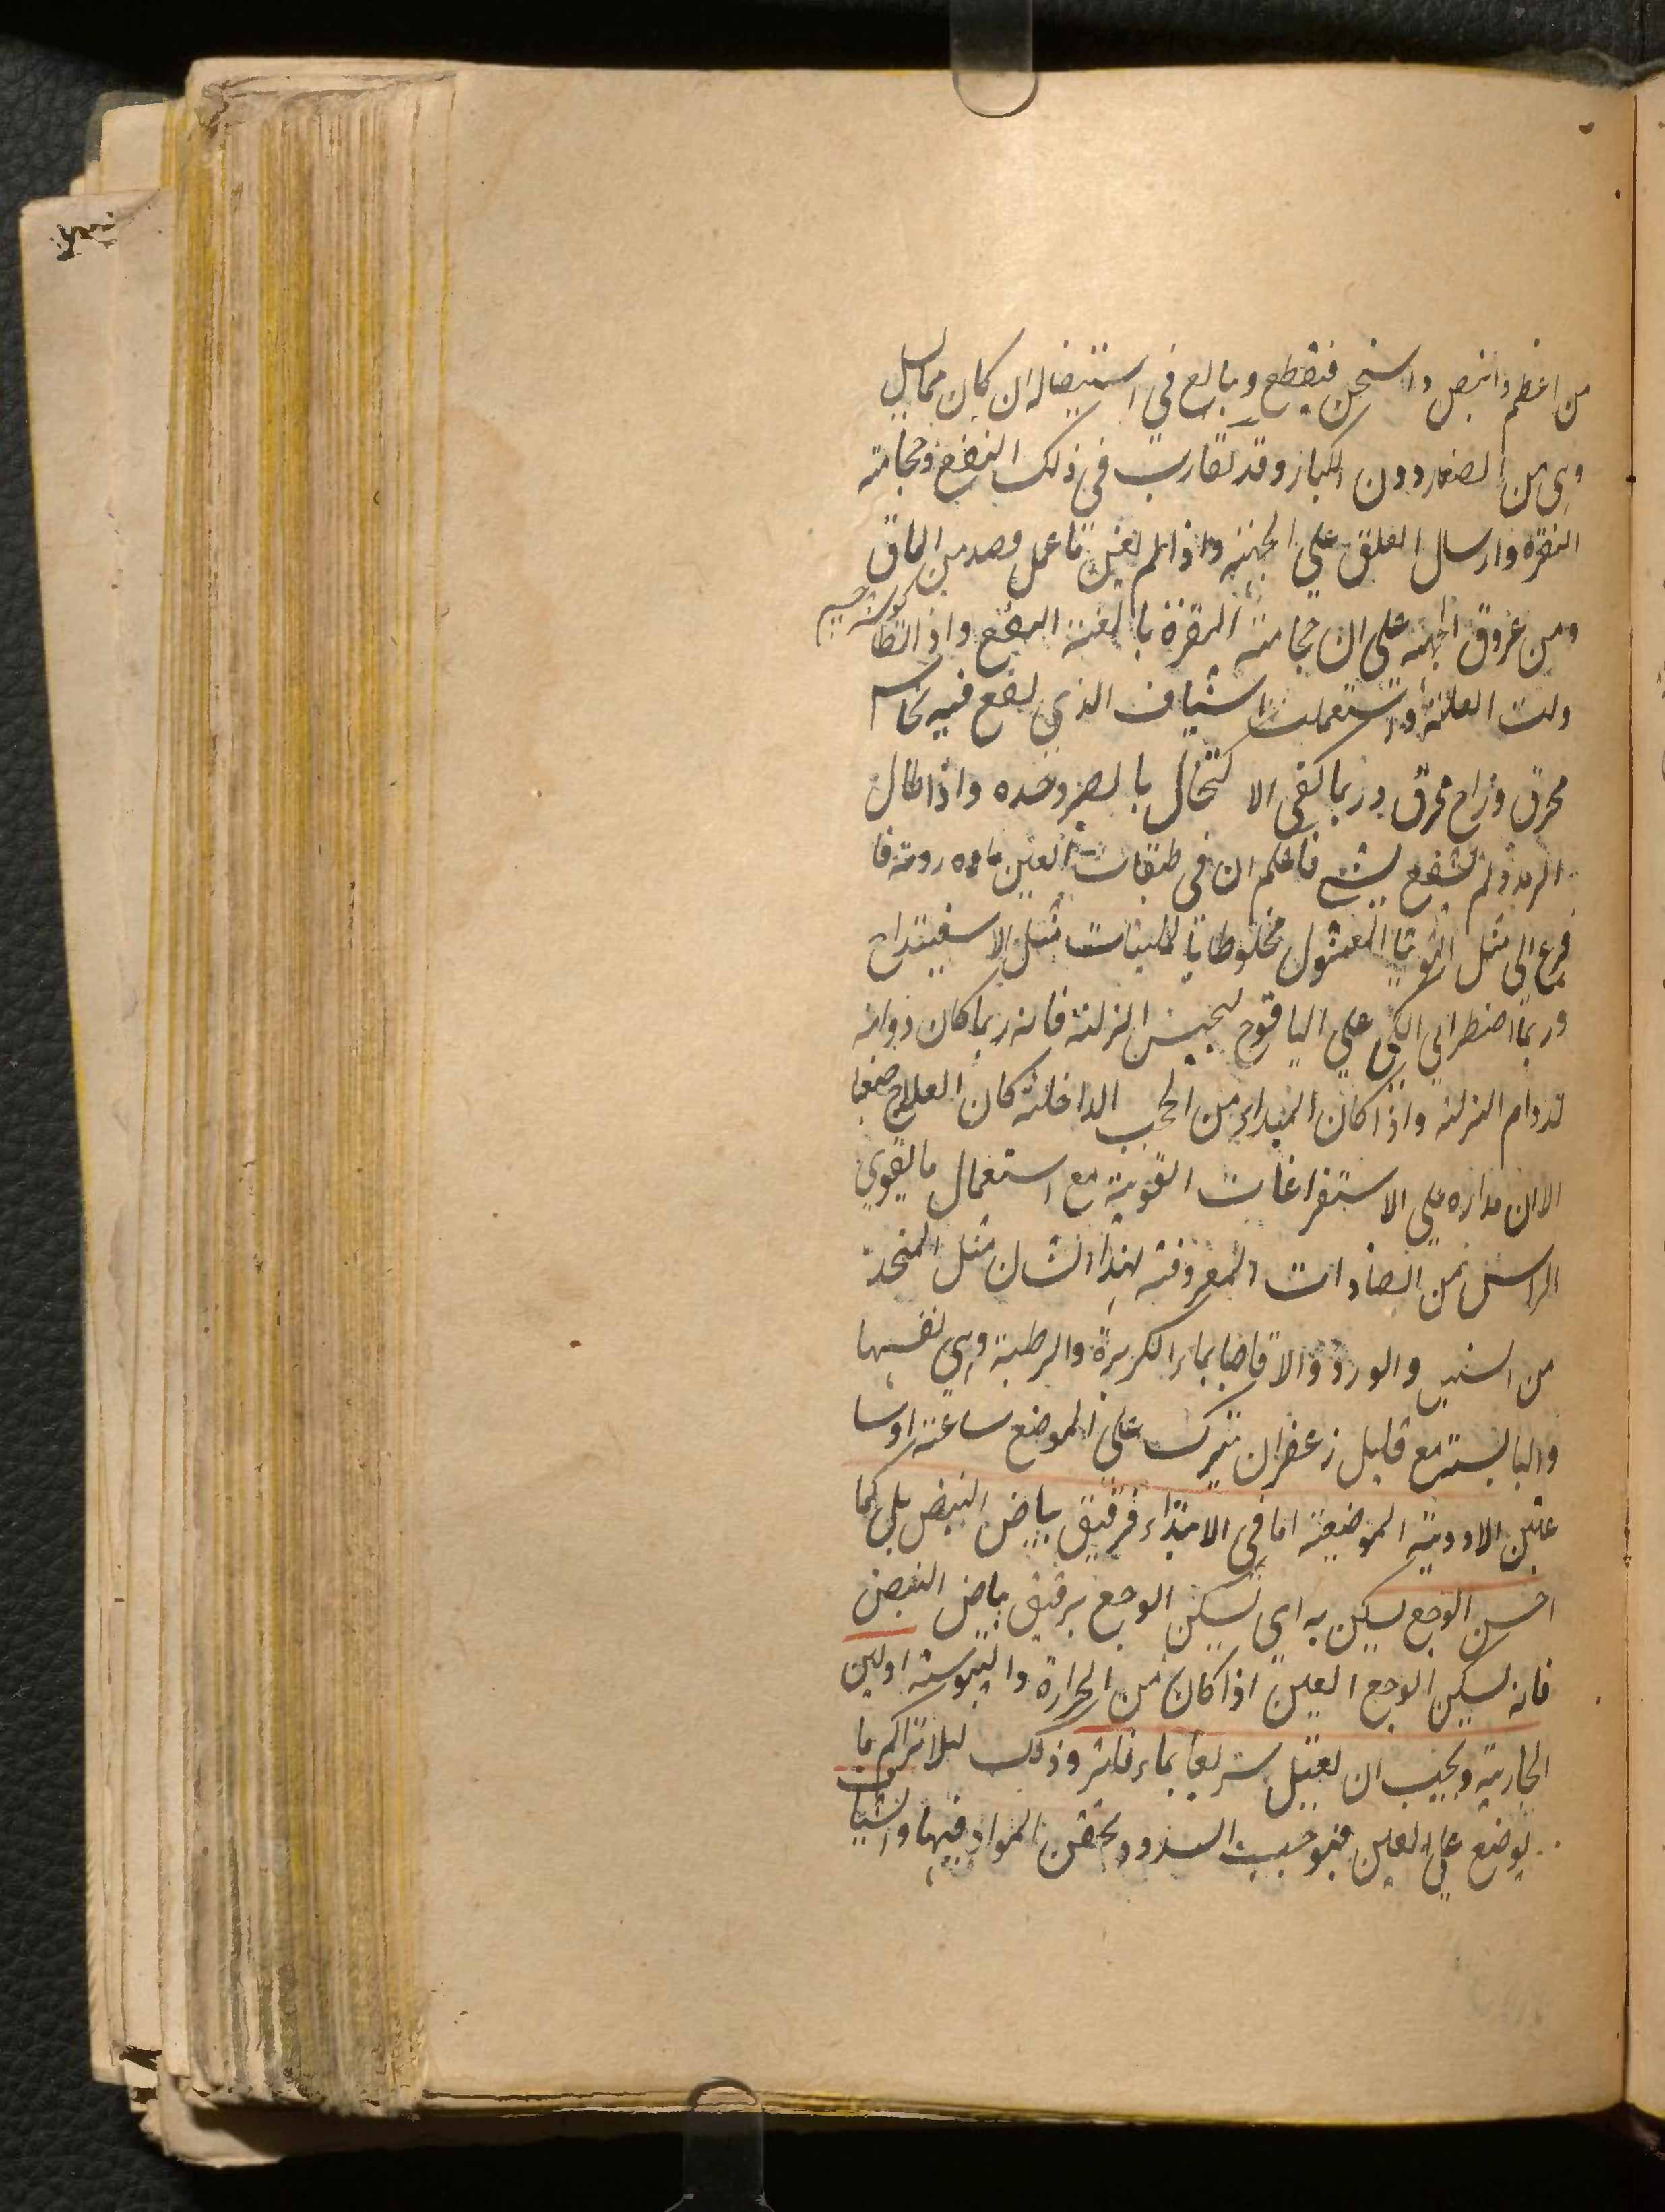 من اعظم وانبض واسخن فيقطع ويبالغ في استيصاله ان كان مما يسيل
وهى من الصغار دون الكبار وقد تقارب فى ذلك النفع وحجامة
النقرة وارسال العلق على الجبهة واذا لم يغن ما عمل فصد من الماق
ومن عروق الجبهة على ان حجامة النقرة بالغة النفع واذا تطا
ولت العلة استعملت الشياف الذي يقع فيه نحاس
محرق وزاج محرق وربما كفى الاكتحال بالصبر وحده واذا طال
الرمد ولم ينتفع بشئ فاعلم ان فى طبقات العين مادة ردية فا
فزع الى مثل التوتيا المغسول مخلوطا بالملينات مثل الاسفيداج
وربما اضطر الى الكي على اليافوخ لحبس النزلة فانه ربما كان دوامه
لدوام النزلة واذا كان المبداء من الحجب الداخلة كان العلاج صعبا
الا ان مداره على الاستفراغات القوية مع استعمال ما يقوي
الراس من الضمادات المعروفة لهذا الشان مثل المتخذ
من السنبل والورد والاقاقيا بماء الكزبرة والرطبة وهي نفسها
واليابسة مع قليل زعفران يترك على الموضع ساعة او سا
عتين الادوية الموضعية اما في الابتداء فرقيق بياض البيض بل كما
احسن الوجع يسكن به اي تسكين الوجع برقيق بياض البيض
فانه يسكن الوجع العين اذا كان من الحرارة واليبوسة او لبن
الجارية ويجب ان يغسل سريعا بماء فاتر وذلك لئلا تتراكم ما
يوضع على العين فيوجب السدود ويحقن المواد فيها والشياف